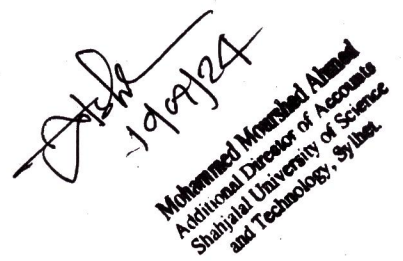 19/07/24
Mohammed Mourshed Ahmed
Additional Director of Accounts
Shahjalal University of Science
and Technology, Sylhet.